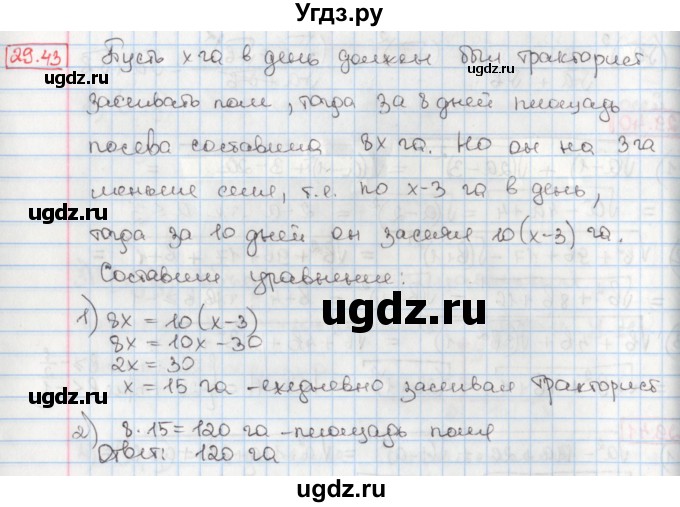 Угдз.ру
29.43 Пусть x га в день должен был тракторист
ugdz.ru
ugdz.ru
засеивать поле, тогда за 8 дней площадь
посева составила 8x га. Но он на 3 га
меньше сеял, т.е. по x-3 га в день,
ugdz.ru
ugdz.ru
тогда за 10 дней он засеял 10(x-3) га.
Составим уравнение:
ugdz.ru
1) 8x = 10(x-3)
8x = 10x - 30
2x = 30
ugdz.ru
ugdz.ru
x = 15 га - ежедневно засеивал тракторист
2) 8·15 = 120 га - площадь поля
Ответ: 120 га
ugdz.ru